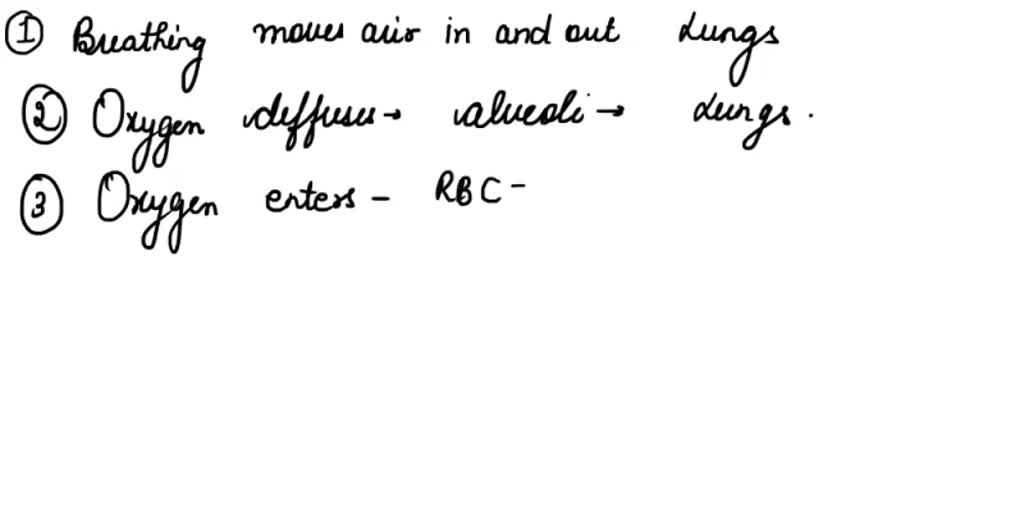 ① Breathing moves air in and out Lungs
② Oxygen diffuses → alveoli → Lungs.
③ Oxygen enters - RBC -